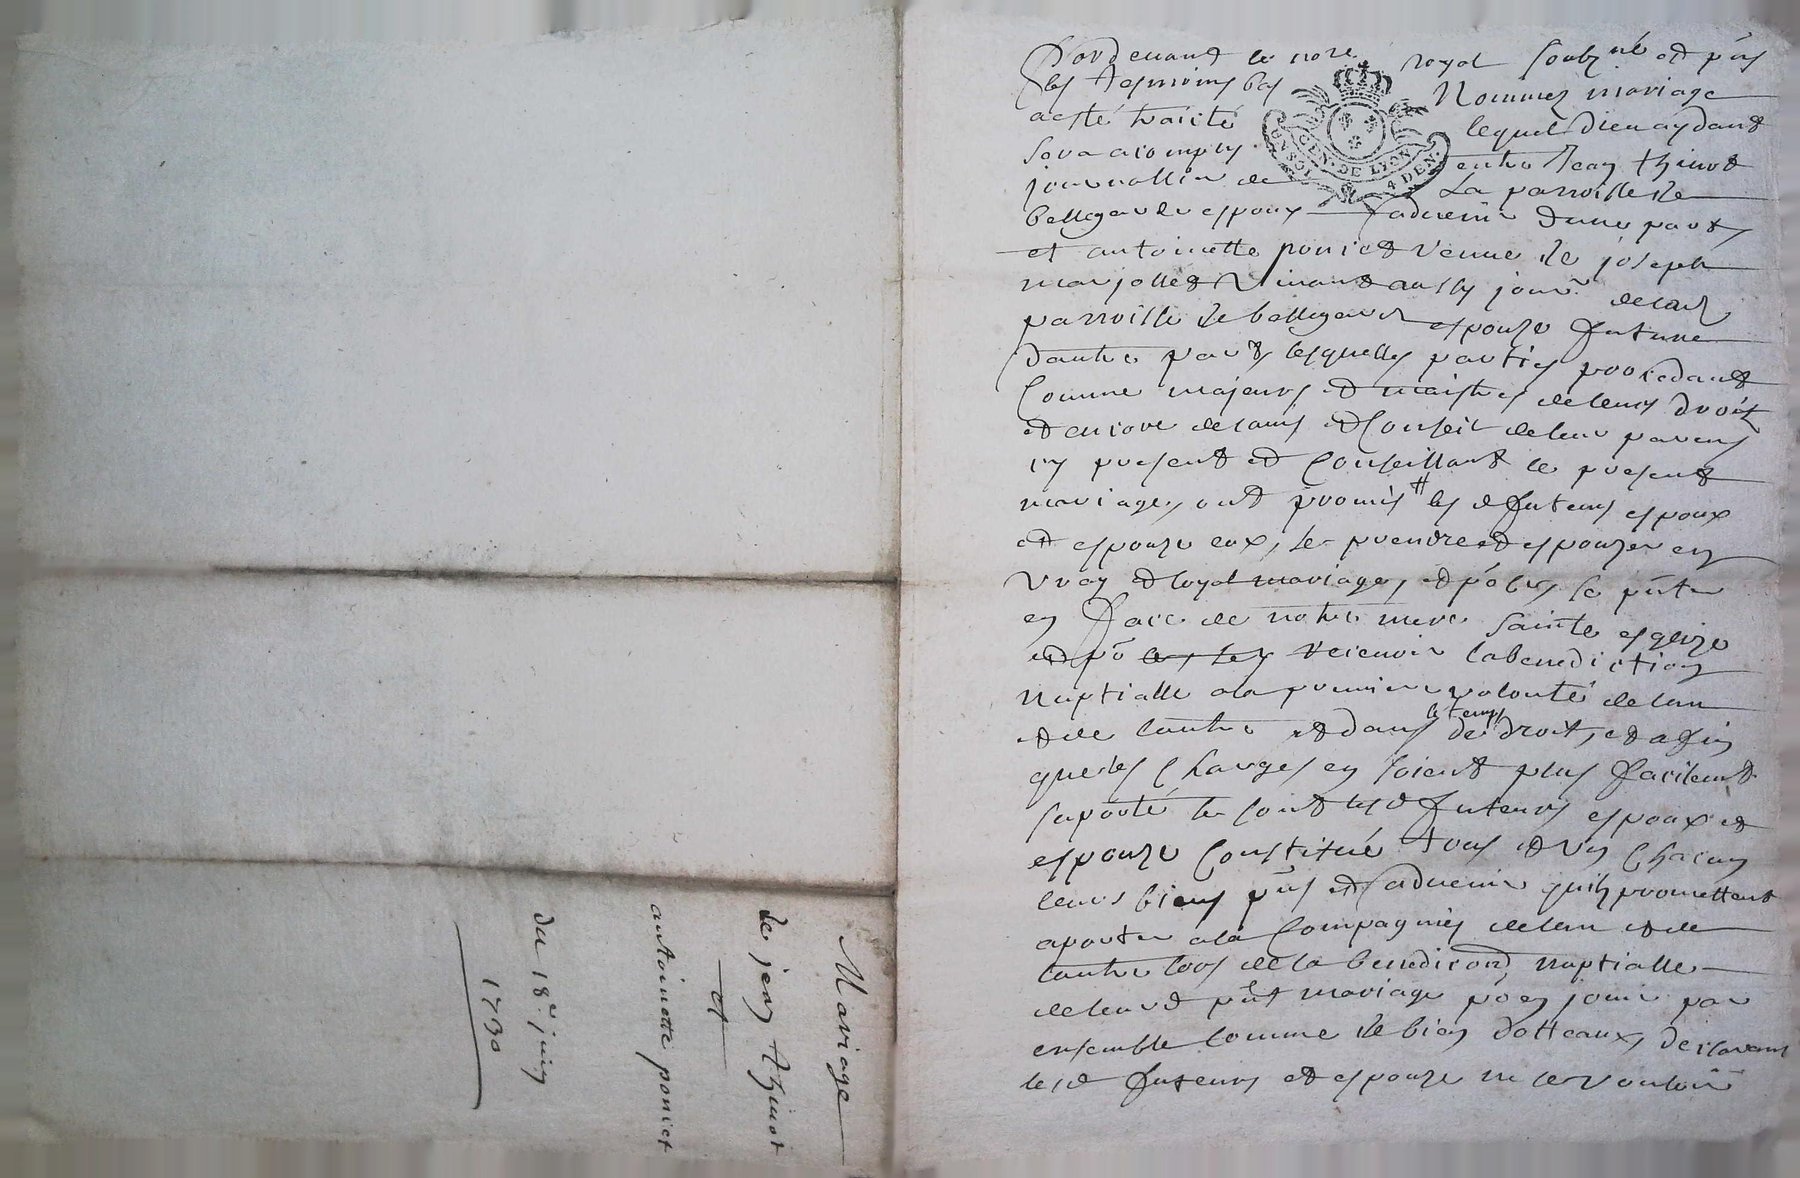 Mariage
de jean thinot
et
antoinette poniet
du 18e. juin
1730
Pardevant le nore royal soubz.né et p̃ns
les tesmoins bas Nommez mariage
a esté traité lequel Dieu aydant
sera acomply entre Jean thinot
journallier de La parroisse de
bellegarde espoux advenir d'une part,
et antoinette poniet veuve de joseph
marjollet vivant aussy jour. delad
parroisse de bellegarde espouze future
dautre part, lesquelles parties procedant
Comme majeurs et maistres de leurs droitz
et encore delavis et Conseil de leur parens
icy present et Conseillant le present
mariage, ont promis # les d futeurs espoux
et espouze eux, se prendre et espouzer en
vray et loyal mariage, et po cest, se p̃nter
en face de notre mere Sainte esglize
et po recevoir labenediction
Nuptialle ala premiere volonté delun
et de lautre et dans le temps de droit, et afin
que les Charges en soient plus facilemt
suporté se sont lesd futeurs espoux et
espouze Constitué tous et un Chacun
leurs biens p̃ns et advenir quilz promettent
aporter ala Compagnie delun et de
lautre lors de la benediction nuptialle
de leurd p̃nt mariage po en jouir par
ensemble Comme de bien dotteaux, declarant
lesd futeurs et espouze ne se vouloir
GEN. DE LYON
4 DEN.